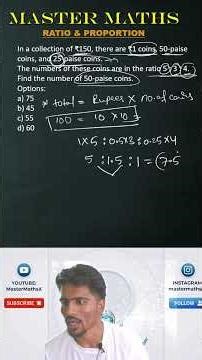 MASTER MATHS
RATIO & PROPORTION
In a collection of ₹150, there are ₹1 coins, 50-paise
coins, and 25-paise coins.
The numbers of these coins are in the ratio 5:3:4.
Find the number of 50-paise coins.
Options:
a) 75
b) 45
c) 55
d) 60
* total = Rupees × no. of coins
100 = 10 × 10 =
1×5 : 0.5×3 : 0.25×4
5 : 1.5 : 1 = 7.5
YOUTUBE:
MasterMathsX
SUBSCRIBE
INSTAGRAM
mastermaths
FOLLOW